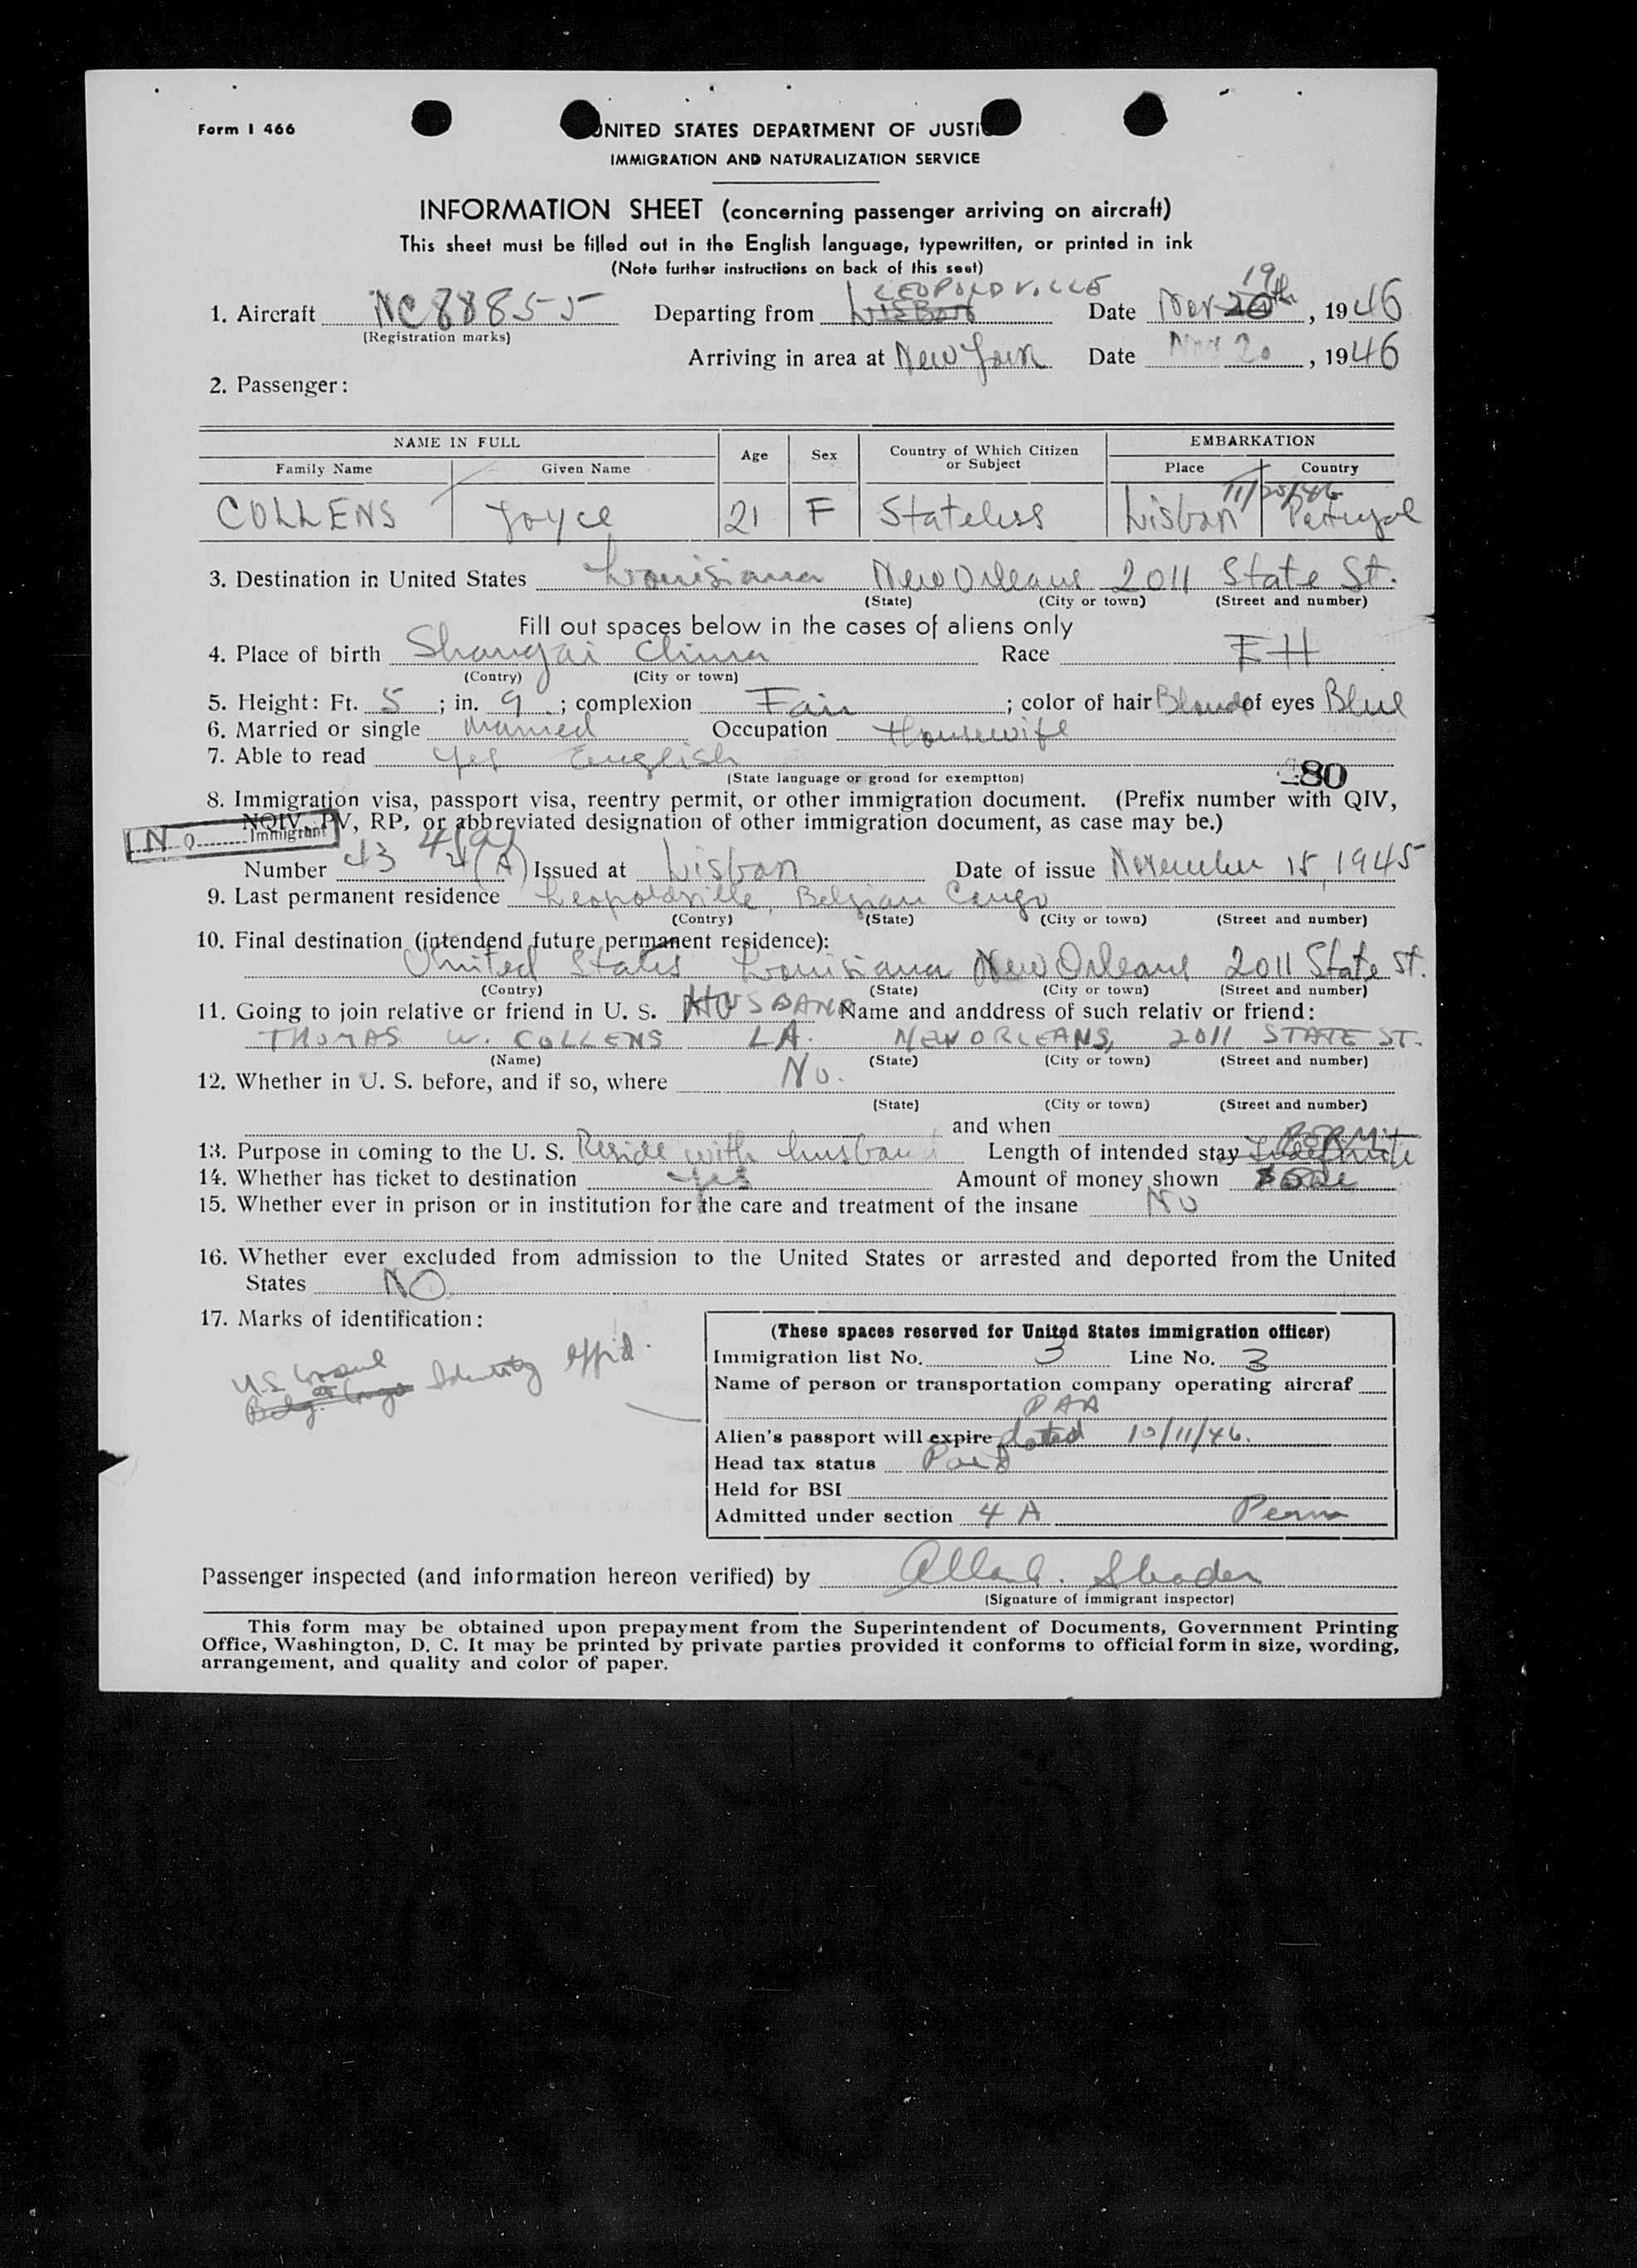 Form I 466
UNITED STATES DEPARTMENT OF JUSTI
IMMIGRATION AND NATURALIZATION SERVICE
INFORMATION SHEET (concerning passenger arriving on aircraft)
This sheet must be filled out in the English language, typewritten, or printed in ink
(Note further instructions on back of this seet)
LEOPOLDVILLE 19
1. Aircraft NC88855 Departing from LISBON Date Nov 20th, 1946
(Registration marks)
Arriving in area at New York Date Nov 20, 1946
2. Passenger:
NAME IN FULL Age Sex Country of Which Citizen or Subject EMBARKATION
Family Name Given Name Place Country
11/20/46
COLLENS Joyce 21 F Stateless Lisbon Portugal
3. Destination in United States Louisiana New Orleans 2011 State St.
(State) (City or town) (Street and number)
Fill out spaces below in the cases of aliens only
4. Place of birth Shangai China Race EH
(Contry) (City or town)
5. Height: Ft. 5; in. 9; complexion Fair; color of hair Blond of eyes Blue
6. Married or single Married Occupation Housewife
7. Able to read Yes English
(State language or grond for exemptton)
80
8. Immigration visa, passport visa, reentry permit, or other immigration document. (Prefix number with QIV,
NQIV, PV, RP, or abbreviated designation of other immigration document, as case may be.)
No Immigrant
4(a)
Number 43 4(A) Issued at Lisbon Date of issue November 15, 1945
9. Last permanent residence Leopoldville, Belgian Congo
(Contry) (State) (City or town) (Street and number)
10. Final destination (intendend future permanent residence):
United States Louisiana New Orleans 2011 State St.
(Contry) (State) (City or town) (Street and number)
11. Going to join relative or friend in U. S. HUSBAND Name and anddress of such relativ or friend:
THOMAS W. COLLENS LA. NEW ORLEANS, 2011 STATE ST.
(Name) (State) (City or town) (Street and number)
12. Whether in U. S. before, and if so, where No.
(State) (City or town) (Street and number)
and when
13. Purpose in coming to the U. S. Reside with husband Length of intended stay Indefinite
14. Whether has ticket to destination Yes Amount of money shown
15. Whether ever in prison or in institution for the care and treatment of the insane No
16. Whether ever excluded from admission to the United States or arrested and deported from the United
States NO
17. Marks of identification:
U.S. Consul Identity Affid.
Belg. Congo
(These spaces reserved for United States immigration officer)
Immigration list No. 3 Line No. 3
Name of person or transportation company operating aircraf
PAA
Alien's passport will expire dated 10/11/46.
Head tax status Paid
Held for BSI
Admitted under section 4 A Perm
Passenger inspected (and information hereon verified) by Allan G. Shader
(Signature of immigrant inspector)
This form may be obtained upon prepayment from the Superintendent of Documents, Government Printing
Office, Washington, D. C. It may be printed by private parties provided it conforms to official form in size, wording,
arrangement, and quality and color of paper.